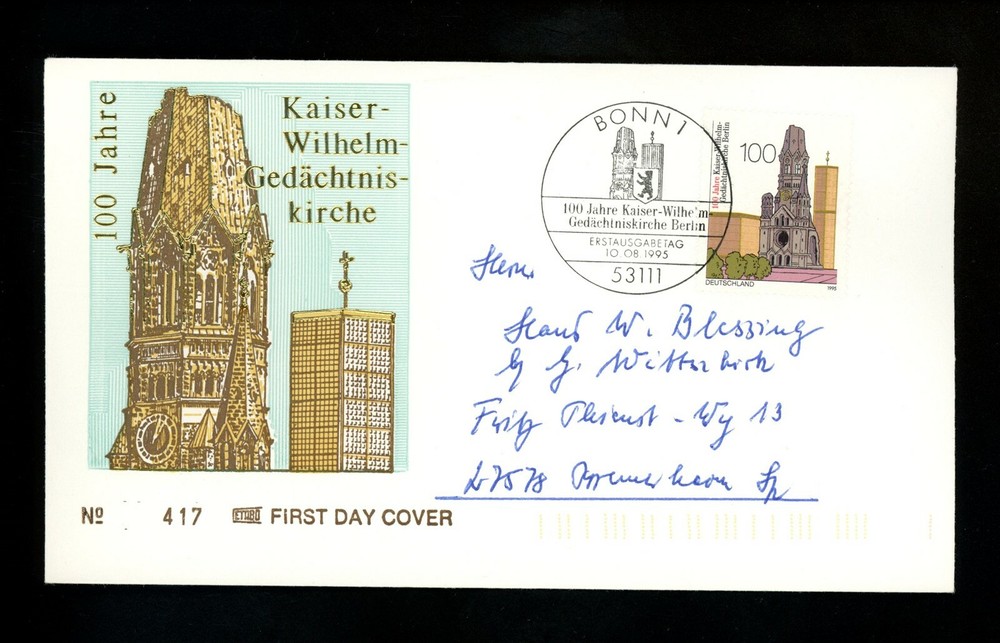 100 Jahre
Kaiser-
Wilhelm-
Gedächtnis-
kirche
BONN 1
100 Jahre Kaiser-Wilhelm-
Gedächtniskirche Berlin
ERSTAUSGABETAG
10.08.1995
53111
100
100 Jahre Kaiser-Wilhelm-
Gedächtniskirche Berlin
DEUTSCHLAND
1995
Herrn
W. Blessing
Fritz Thienst-Wg 13
27578 Bremerhaven
Nº 417 ETHBO FIRST DAY COVER